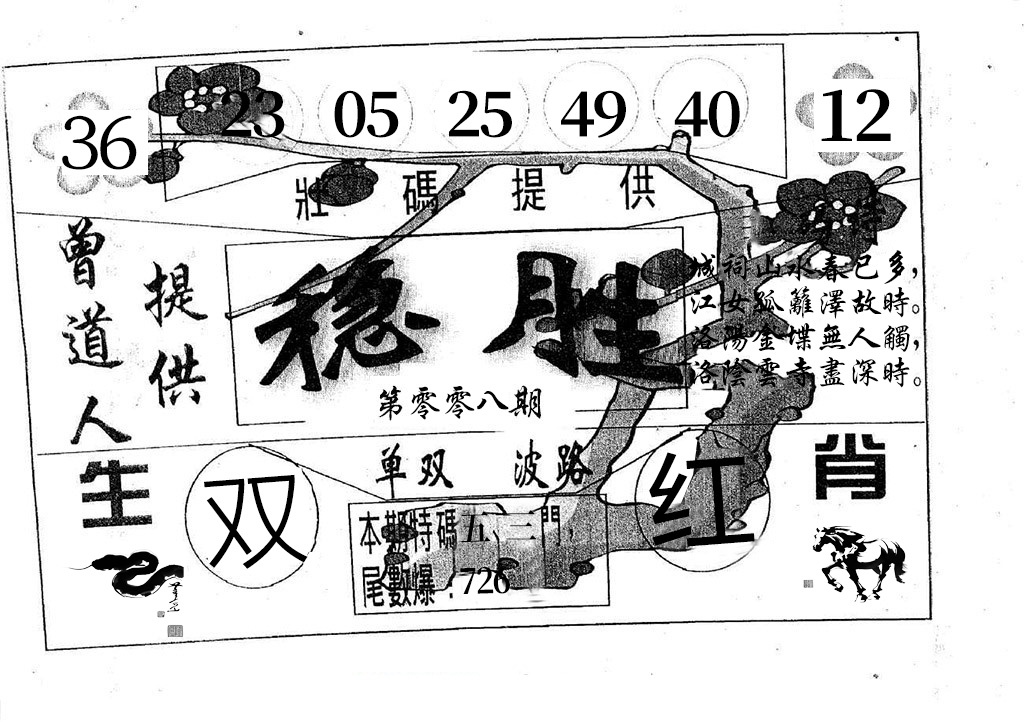 36 23 05 25 49 40 12
壯碼提供
曾道人
提供
稳胜
第零零八期
城祠山水春已多，
江女孤籬澤故時。
洛陽金堞無人觸，
洛陰雲寺盡深時。
单双 波路
生 肖
双
红
本期特碼五、三門，
尾數爆：726